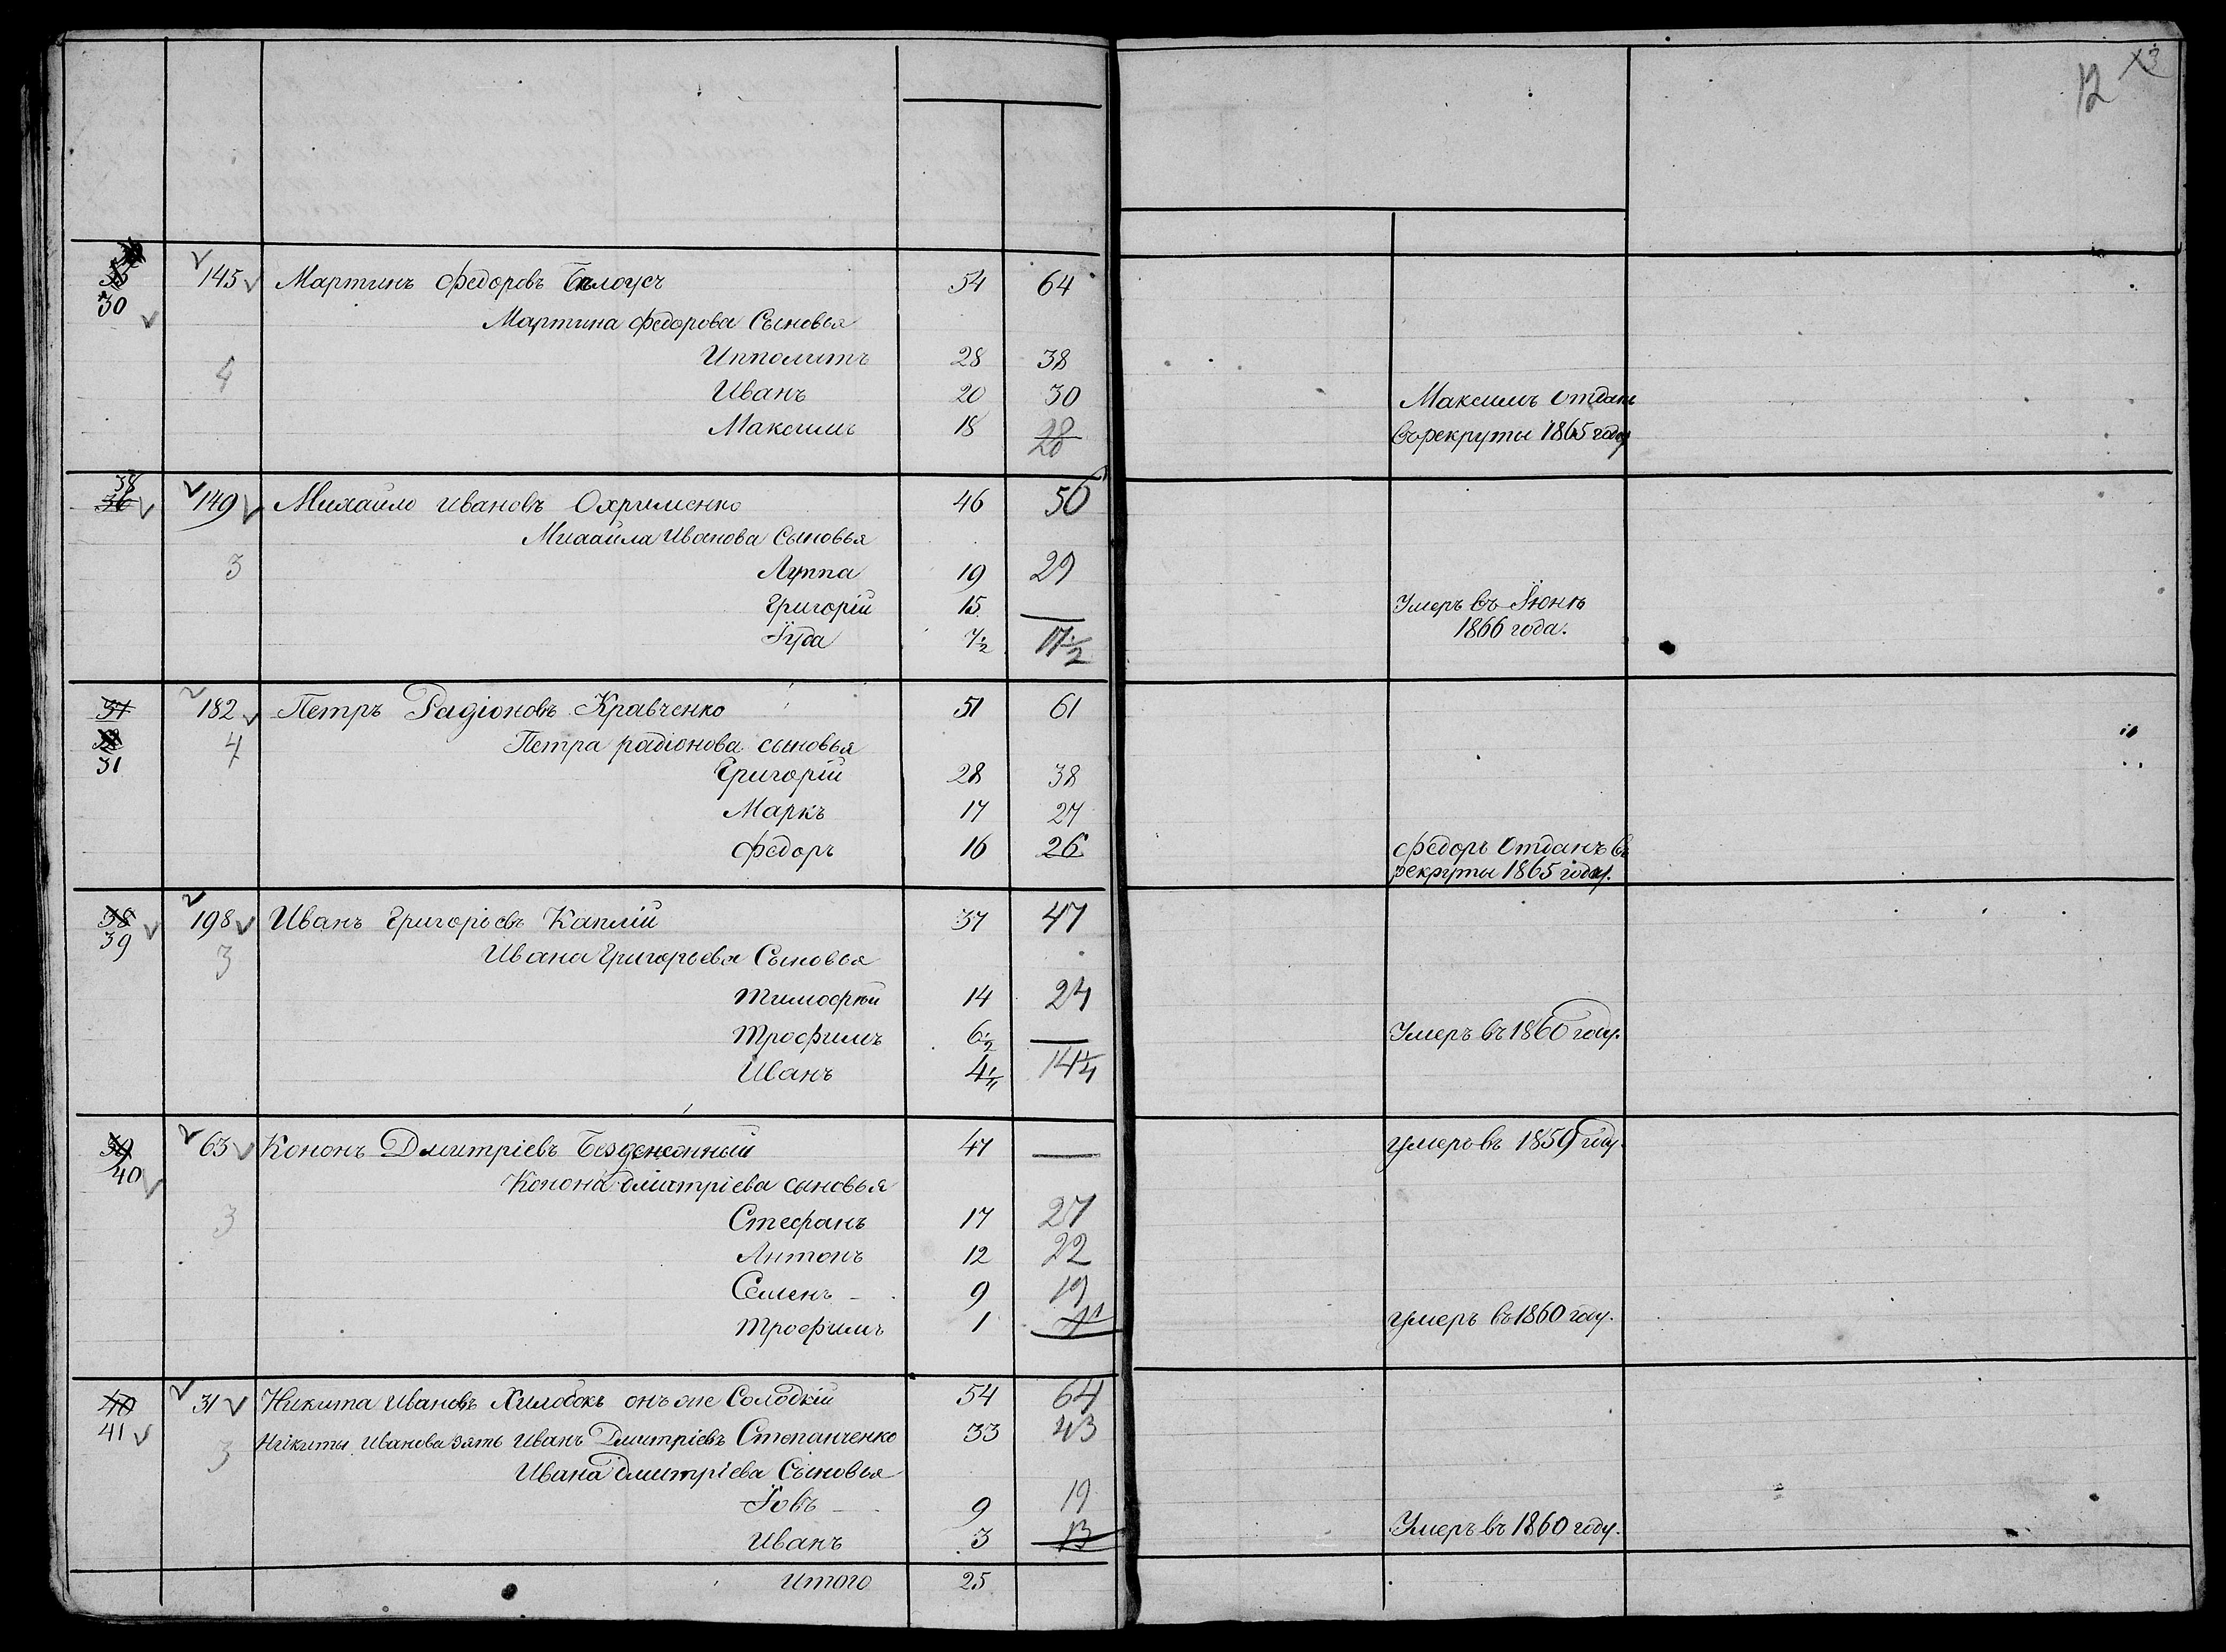 12 13
35
30 145 Мартинъ Федоровъ Бѣлоусъ 54 64
Мартина Федорова Сыновья
Ипполитъ 28 38
4
Иванъ 20 30 Максимъ отданъ
Максимъ 18 28 въ рекруты 1865 году
38
36 149 Михайло Ивановъ Охрименко 46 56
Михаила Иванова Сыновья
3 Луппа 19 29
Григорій 15 — Умеръ въ Іюнѣ
Іуда 7½ 17½ 1866 года.
37 182 Петръ Радіоновъ Кравченко 51 61
4 Петра радіонова сыновья
31 Григорій 28 38
Маркъ 17 27
Федоръ 16 26 Федоръ отданъ въ
рекруты 1865 году.
38 198 Иванъ Григорьевъ Каплій 37 47
39 3 Ивана Григорьева Сыновья
Тимофѣй 14 24
Трофимъ 6½ — Умеръ въ 1860 году.
Иванъ 4¼ 14¼
39 63 Кононъ Дмитріевъ Безденежный 47 — умеръ въ 1859 году.
40 Конона дмитріева сыновья
3 Стефанъ 17 27
Антонъ 12 22
Семенъ 9 19
Трофимъ 1 11 умеръ въ 1860 году.
40 31 Никита Ивановъ Хилобокъ онъ же Солодкій 54 64
41 3 Никиты Иванова зять Иванъ Дмитріевъ Степанченко 33 43
Ивана дмитріева Сыновья
Іовъ 9 19
Иванъ 3 13 Умеръ въ 1860 году.
Итого 25